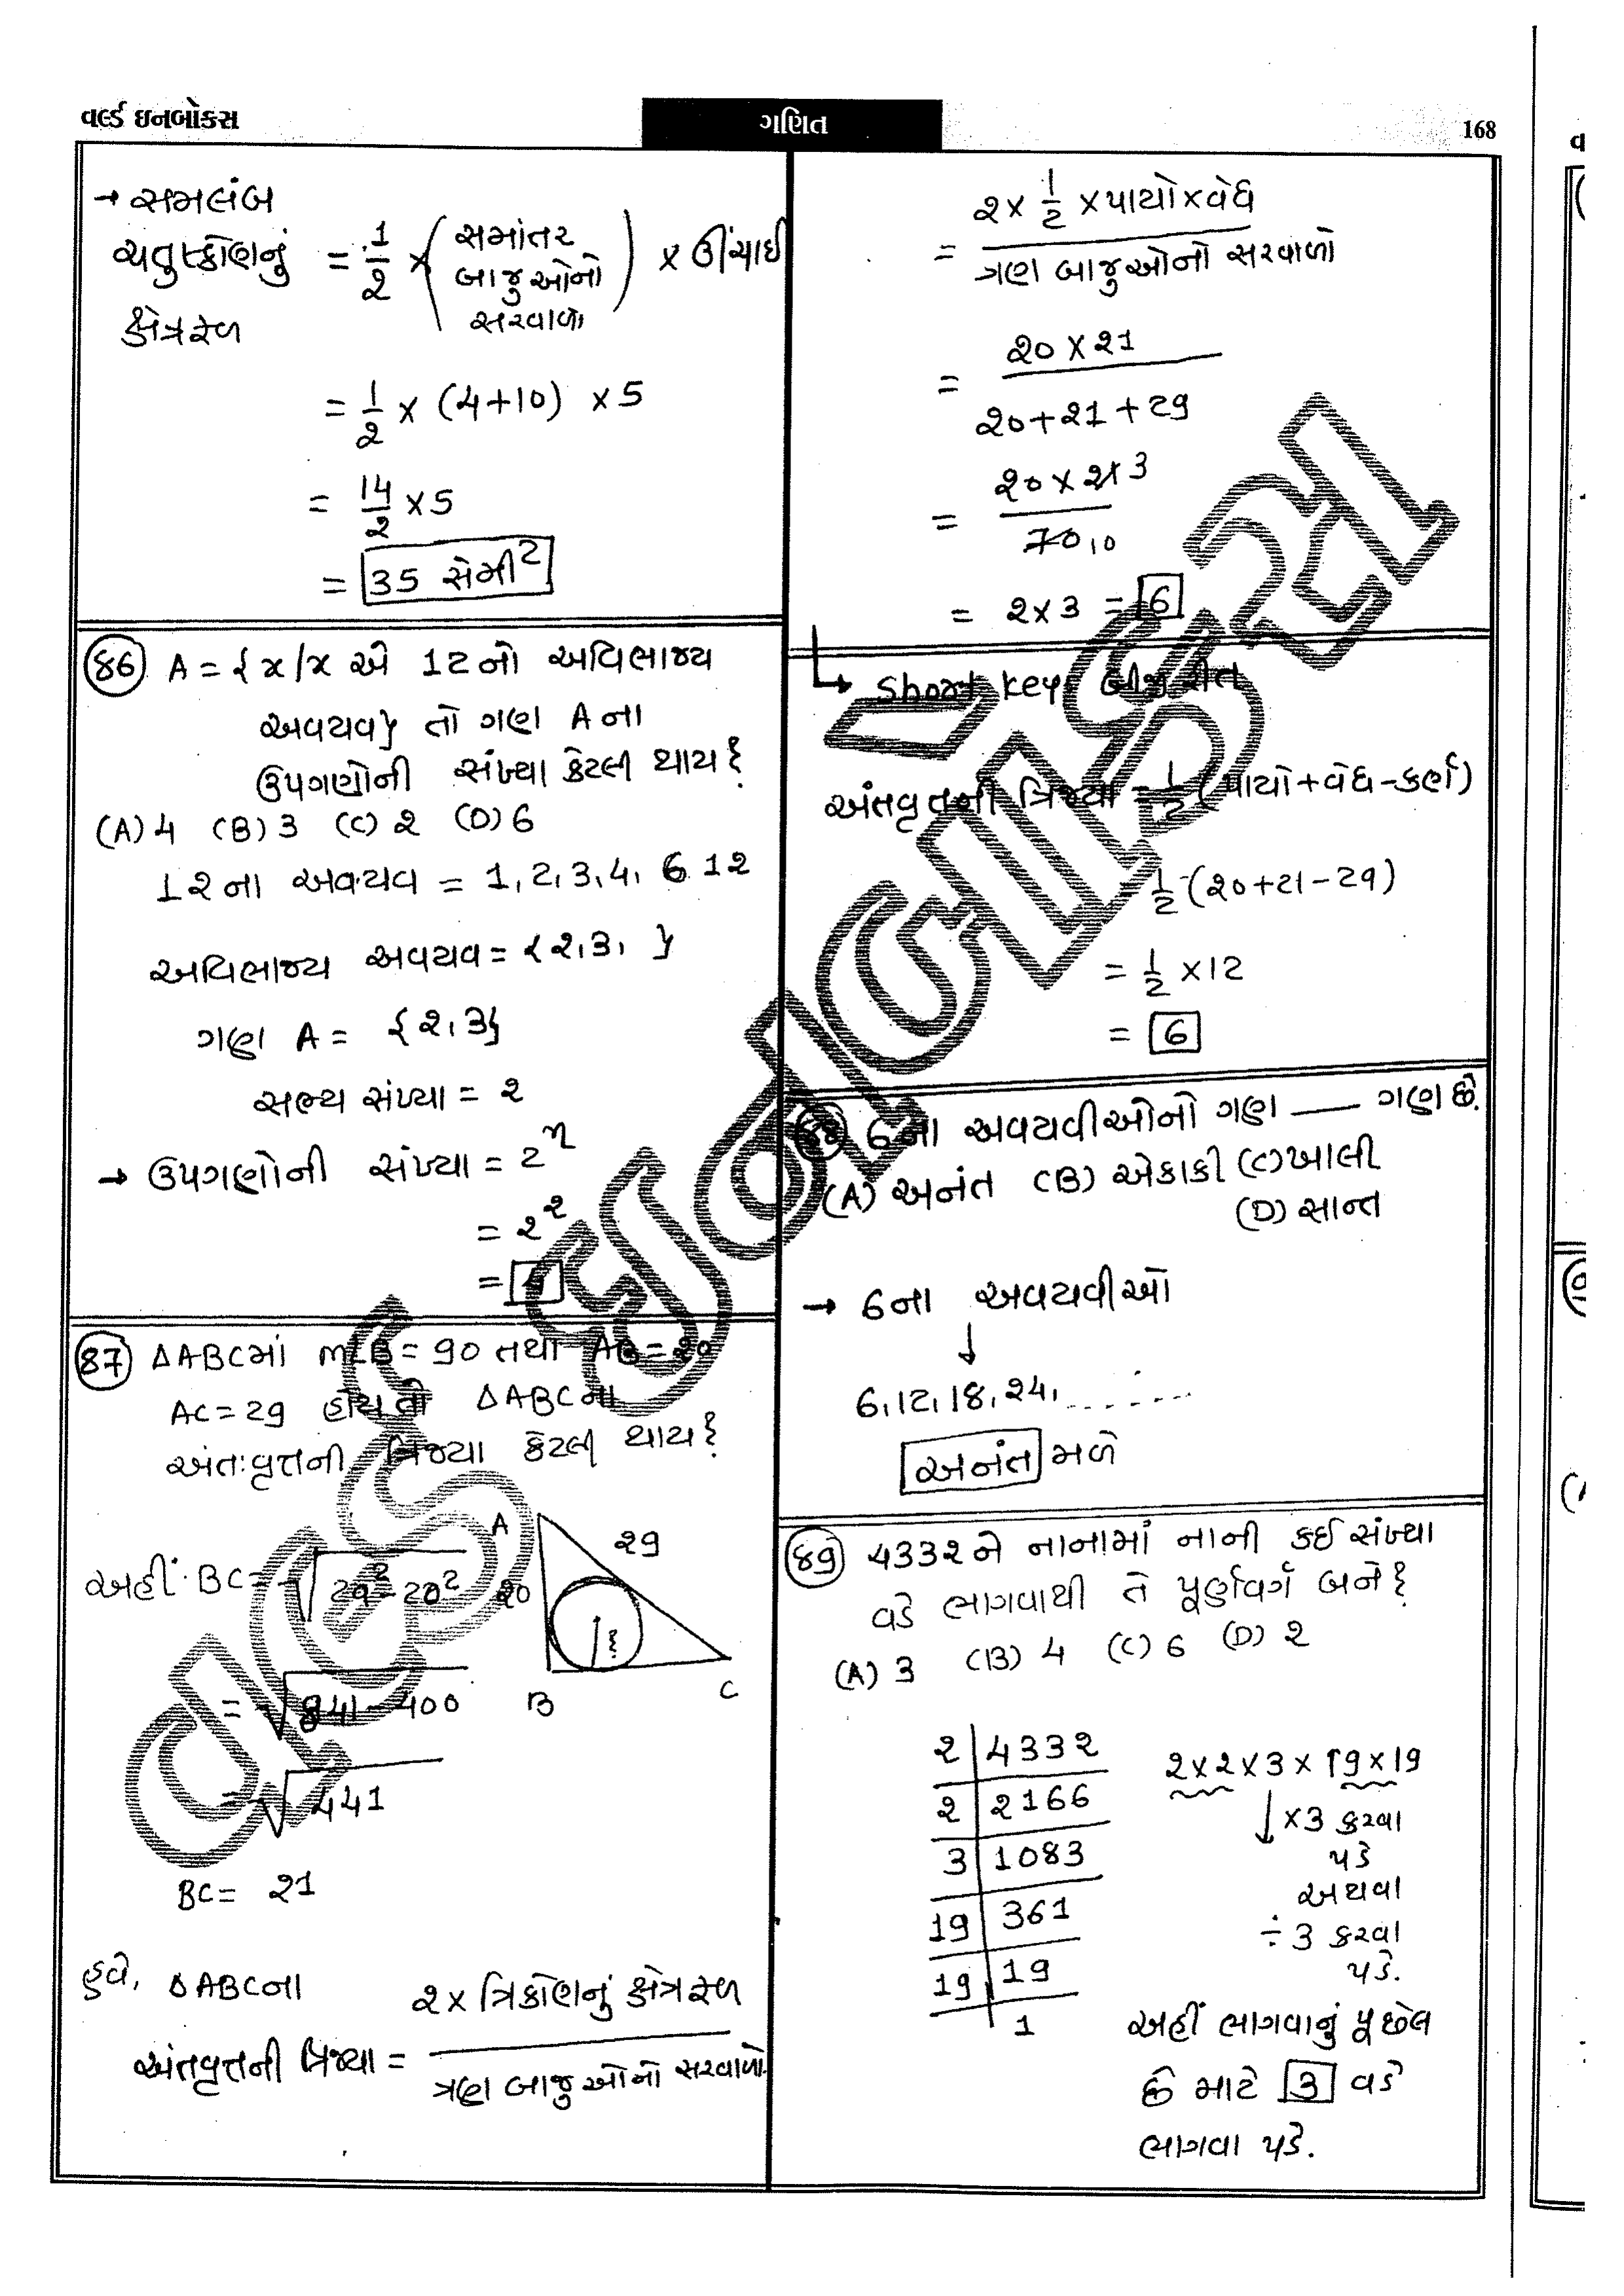 વર્લ્ડ ઇનબોક્સ
ગણિત
168
→ સમલંબ
ચતુષ્કોણનું = 1/2 × ( સમાંતર બાજુઓનો સરવાળો ) × ઊંચાઈ
ક્ષેત્રફળ
= 1/2 × (4+10) × 5
= 14/2 × 5
= 35 સેમી²
86 A = {x/x એ 12નો અવિભાજ્ય
અવયવ} તો ગણ A ના
ઉપગણોની સંખ્યા કેટલી થાય?
(A) 4 (B) 3 (C) ૨ (D) 6
1૨ના અવયવ = 1, 2, 3, 4, 6 1૨
અવિભાજ્ય અવયવ = {૨, 3, }
ગણ A = {૨, 3}
સભ્ય સંખ્યા = ૨
→ ઉપગણોની સંખ્યા = 2ⁿ
= ૨^૨
= 4
87 ΔABCમાં m∠B = 90 તથા AB = ૨0
AC = 29 હોય તો ΔABCના
અંતઃવૃત્તની ત્રિજ્યા કેટલી થાય?
A
૨9
૨0
B
C
?
અહીં BC = √29² - 20²
= √841 - 400
= √441
BC = ૨1
હવે, ΔABCના
અંતવૃત્તની ત્રિજ્યા = ૨ × ત્રિકોણનું ક્ષેત્રફળ / ત્રણ બાજુઓનો સરવાળો
= ૨ × 1/2 × પાયો × વેધ / ત્રણ બાજુઓનો સરવાળો
= ૨0 × ૨1 / ૨0 + 21 + 29
= ૨0 × ૨1 3 / 70 10
= ૨ × 3 = 6
→ Short key બીજી રીત
અંતવૃતની ત્રિજ્યા = 1/2 (પાયો + વેધ - કર્ણ)
1/2 (૨0 + 21 - 29)
= 1/2 × 12
= 6
88 6ના અવયવીઓનો ગણ ___ ગણ છે.
(A) અનંત (B) એકાકી (C) ખાલી
(D) સાન્ત
→ 6ના અવયવીઓ
↓
6, 12, 18, ૨4, .......
અનંત મળે
89 433૨ ને નાનામાં નાની કઈ સંખ્યા
વડે ભાગવાથી તે પૂર્ણવર્ગ બને?
(A) 3 (B) 4 (C) 6 (D) ૨
૨ | 433૨
૨ | ૨166
3 | 1083
19 | 361
19 | 19
1
૨ × ૨ × 3 × 19 × 19
↓ ×3 કરવા
પડે
અથવા
÷ 3 કરવા
પડે.
અહીં ભાગવાનું પૂછેલ
છે માટે 3 વડે
ભાગવા પડે.